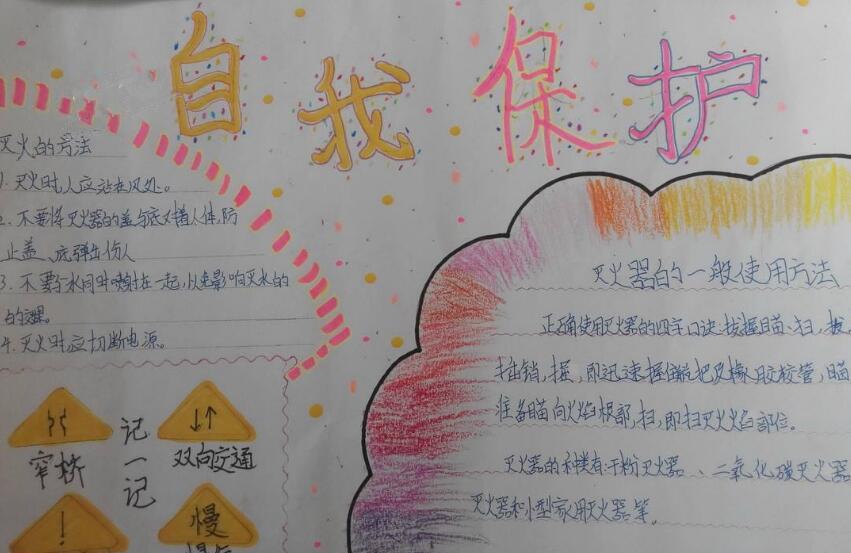 自我保护
灭火的方法
1. 灭火时,人应站在风处。
2. 不要将灭火器的盖与底对着人体,防
止盖、底弹出伤人
3. 不要与水同时喷射在一起,以免影响灭火的
的效果。
4. 灭火时应切断电源。
记一记
窄桥
双向交通
!
慢
灭火器的一般使用方法
正确使用灭火器的四字口诀:拔、握、瞄、扫,拔,
拔出销,握,即迅速握住把及橡胶软管,瞄
准备瞄向火焰根部,扫,即扫灭火焰部位。
灭火器的种类有:干粉灭火器、二氧化碳灭火器
灭火器和小型家用灭火器等。